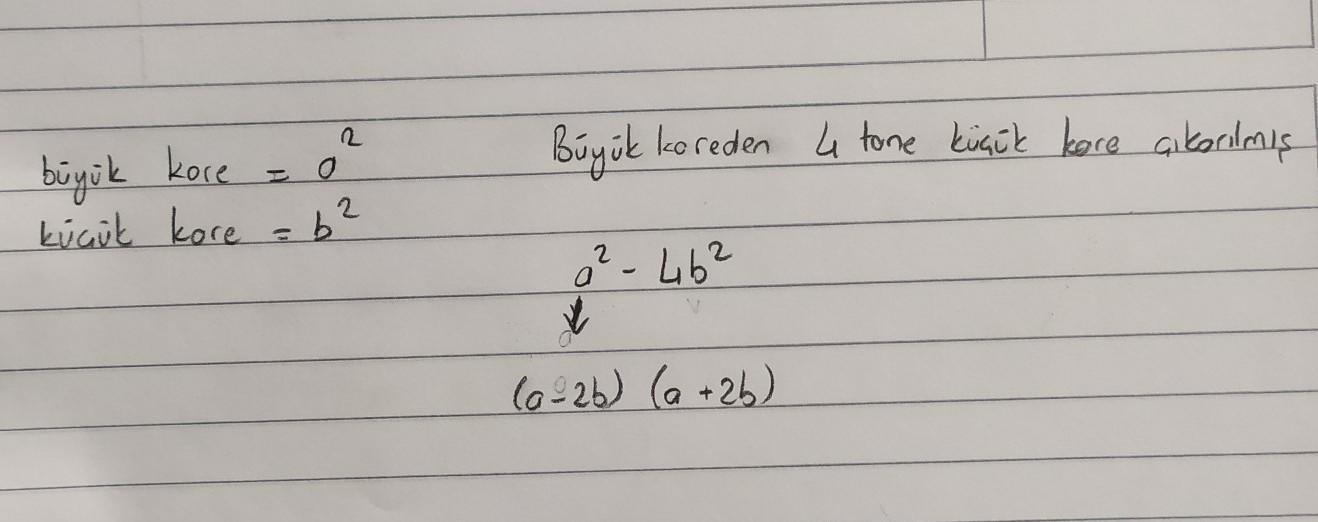 büyük kare = a²
küçük kare = b²
Büyük kareden 4 tane küçük kare çıkarılmış
a² - 4b²
↓
(a-2b) (a+2b)